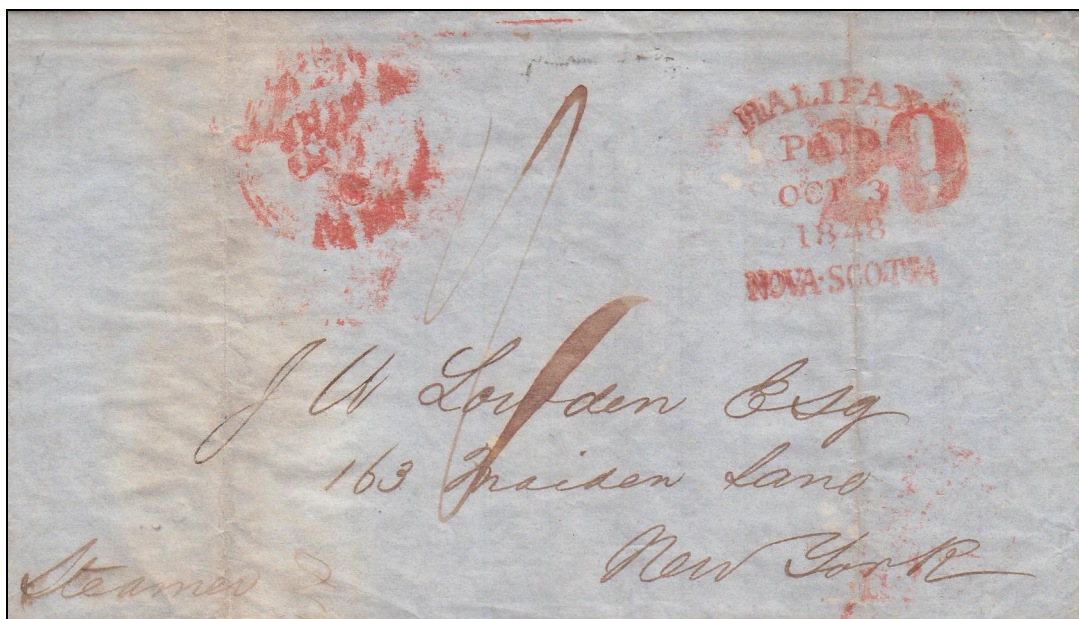 HALIFAX
PAID
20
OCT 3
1848
NOVA·SCOTIA
J W Lowden Esq
163 Maiden Lane
New York
Steamer